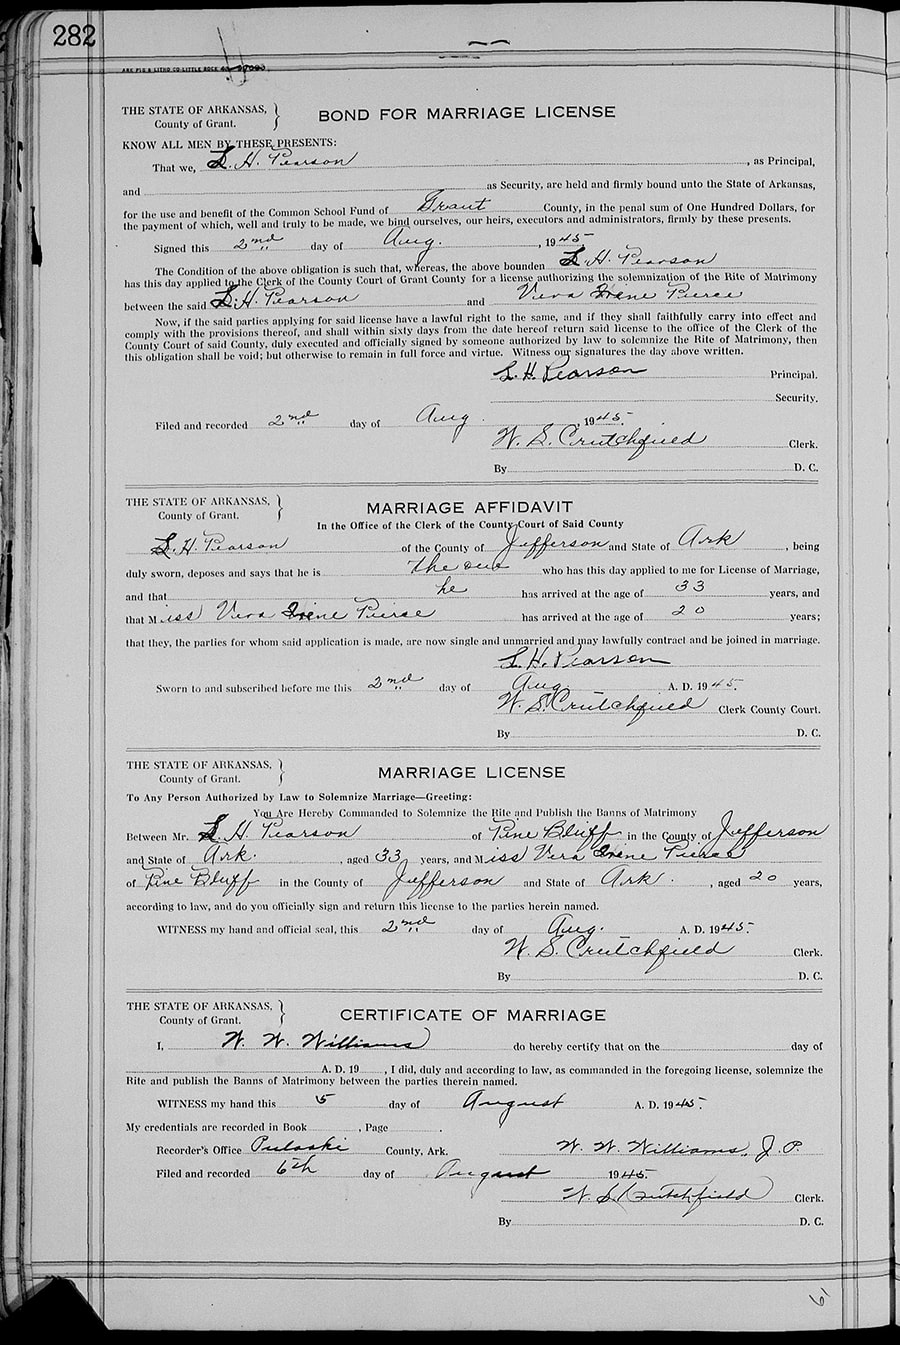 282
THE STATE OF ARKANSAS,
County of Grant.
BOND FOR MARRIAGE LICENSE
KNOW ALL MEN BY THESE PRESENTS:
That we, L. H. Pearson, as Principal,
and as Security, are held and firmly bound unto the State of Arkansas,
for the use and benefit of the Common School Fund of Grant County, in the penal sum of One Hundred Dollars, for
the payment of which, well and truly to be made, we bind ourselves, our heirs, executors and administrators, firmly by these presents.
Signed this 2nd day of Aug., 1945
The Condition of the above obligation is such that, whereas, the above bounden L. H. Pearson
has this day applied to the Clerk of the County Court of Grant County for a license authorizing the solemnization of the Rite of Matrimony
between the said L. H. Pearson and Vera Irene Pierce
Now, if the said parties applying for said license have a lawful right to the same, and if they shall faithfully carry into effect and
comply with the provisions thereof, and shall within sixty days from the date hereof return said license to the office of the Clerk of the
County Court of said County, duly executed and officially signed by someone authorized by law to solemnize the Rite of Matrimony, then
this obligation shall be void; but otherwise to remain in full force and virtue. Witness our signatures the day above written.
L. H. Pearson Principal.
Security.
Filed and recorded 2nd day of Aug., 1945.
W. S. Crutchfield Clerk.
By D. C.
THE STATE OF ARKANSAS,
County of Grant.
MARRIAGE AFFIDAVIT
In the Office of the Clerk of the County Court of Said County
L. H. Pearson of the County of Jefferson and State of Ark, being
duly sworn, deposes and says that he is the one who has this day applied to me for License of Marriage,
and that he has arrived at the age of 33 years, and
that Miss Vera Irene Pierce has arrived at the age of 20 years;
that they, the parties for whom said application is made, are now single and unmarried and may lawfully contract and be joined in marriage.
L. H. Pearson
Sworn to and subscribed before me this 2nd day of Aug. A. D. 1945.
W. S. Crutchfield Clerk County Court.
By D. C.
THE STATE OF ARKANSAS,
County of Grant.
MARRIAGE LICENSE
To Any Person Authorized by Law to Solemnize Marriage—Greeting:
You Are Hereby Commanded to Solemnize the Rite and Publish the Banns of Matrimony
Between Mr. L. H. Pearson of Pine Bluff in the County of Jefferson
and State of Ark., aged 33 years, and Miss Vera Irene Pierce
of Pine Bluff in the County of Jefferson and State of Ark., aged 20 years,
according to law, and do you officially sign and return this license to the parties herein named.
WITNESS my hand and official seal, this 2nd day of Aug. A. D. 1945.
W. S. Crutchfield Clerk.
By D. C.
THE STATE OF ARKANSAS,
County of Grant.
CERTIFICATE OF MARRIAGE
I, W. W. Williams do hereby certify that on the day of
A. D. 19, I did, duly and according to law, as commanded in the foregoing license, solemnize the
Rite and publish the Banns of Matrimony between the parties therein named.
WITNESS my hand this 5 day of August A. D. 1945.
My credentials are recorded in Book, Page.
Recorder's Office Pulaski County, Ark. W. W. Williams, J. P.
Filed and recorded 6th day of August 1945.
W. S. Crutchfield Clerk.
By D. C.
61